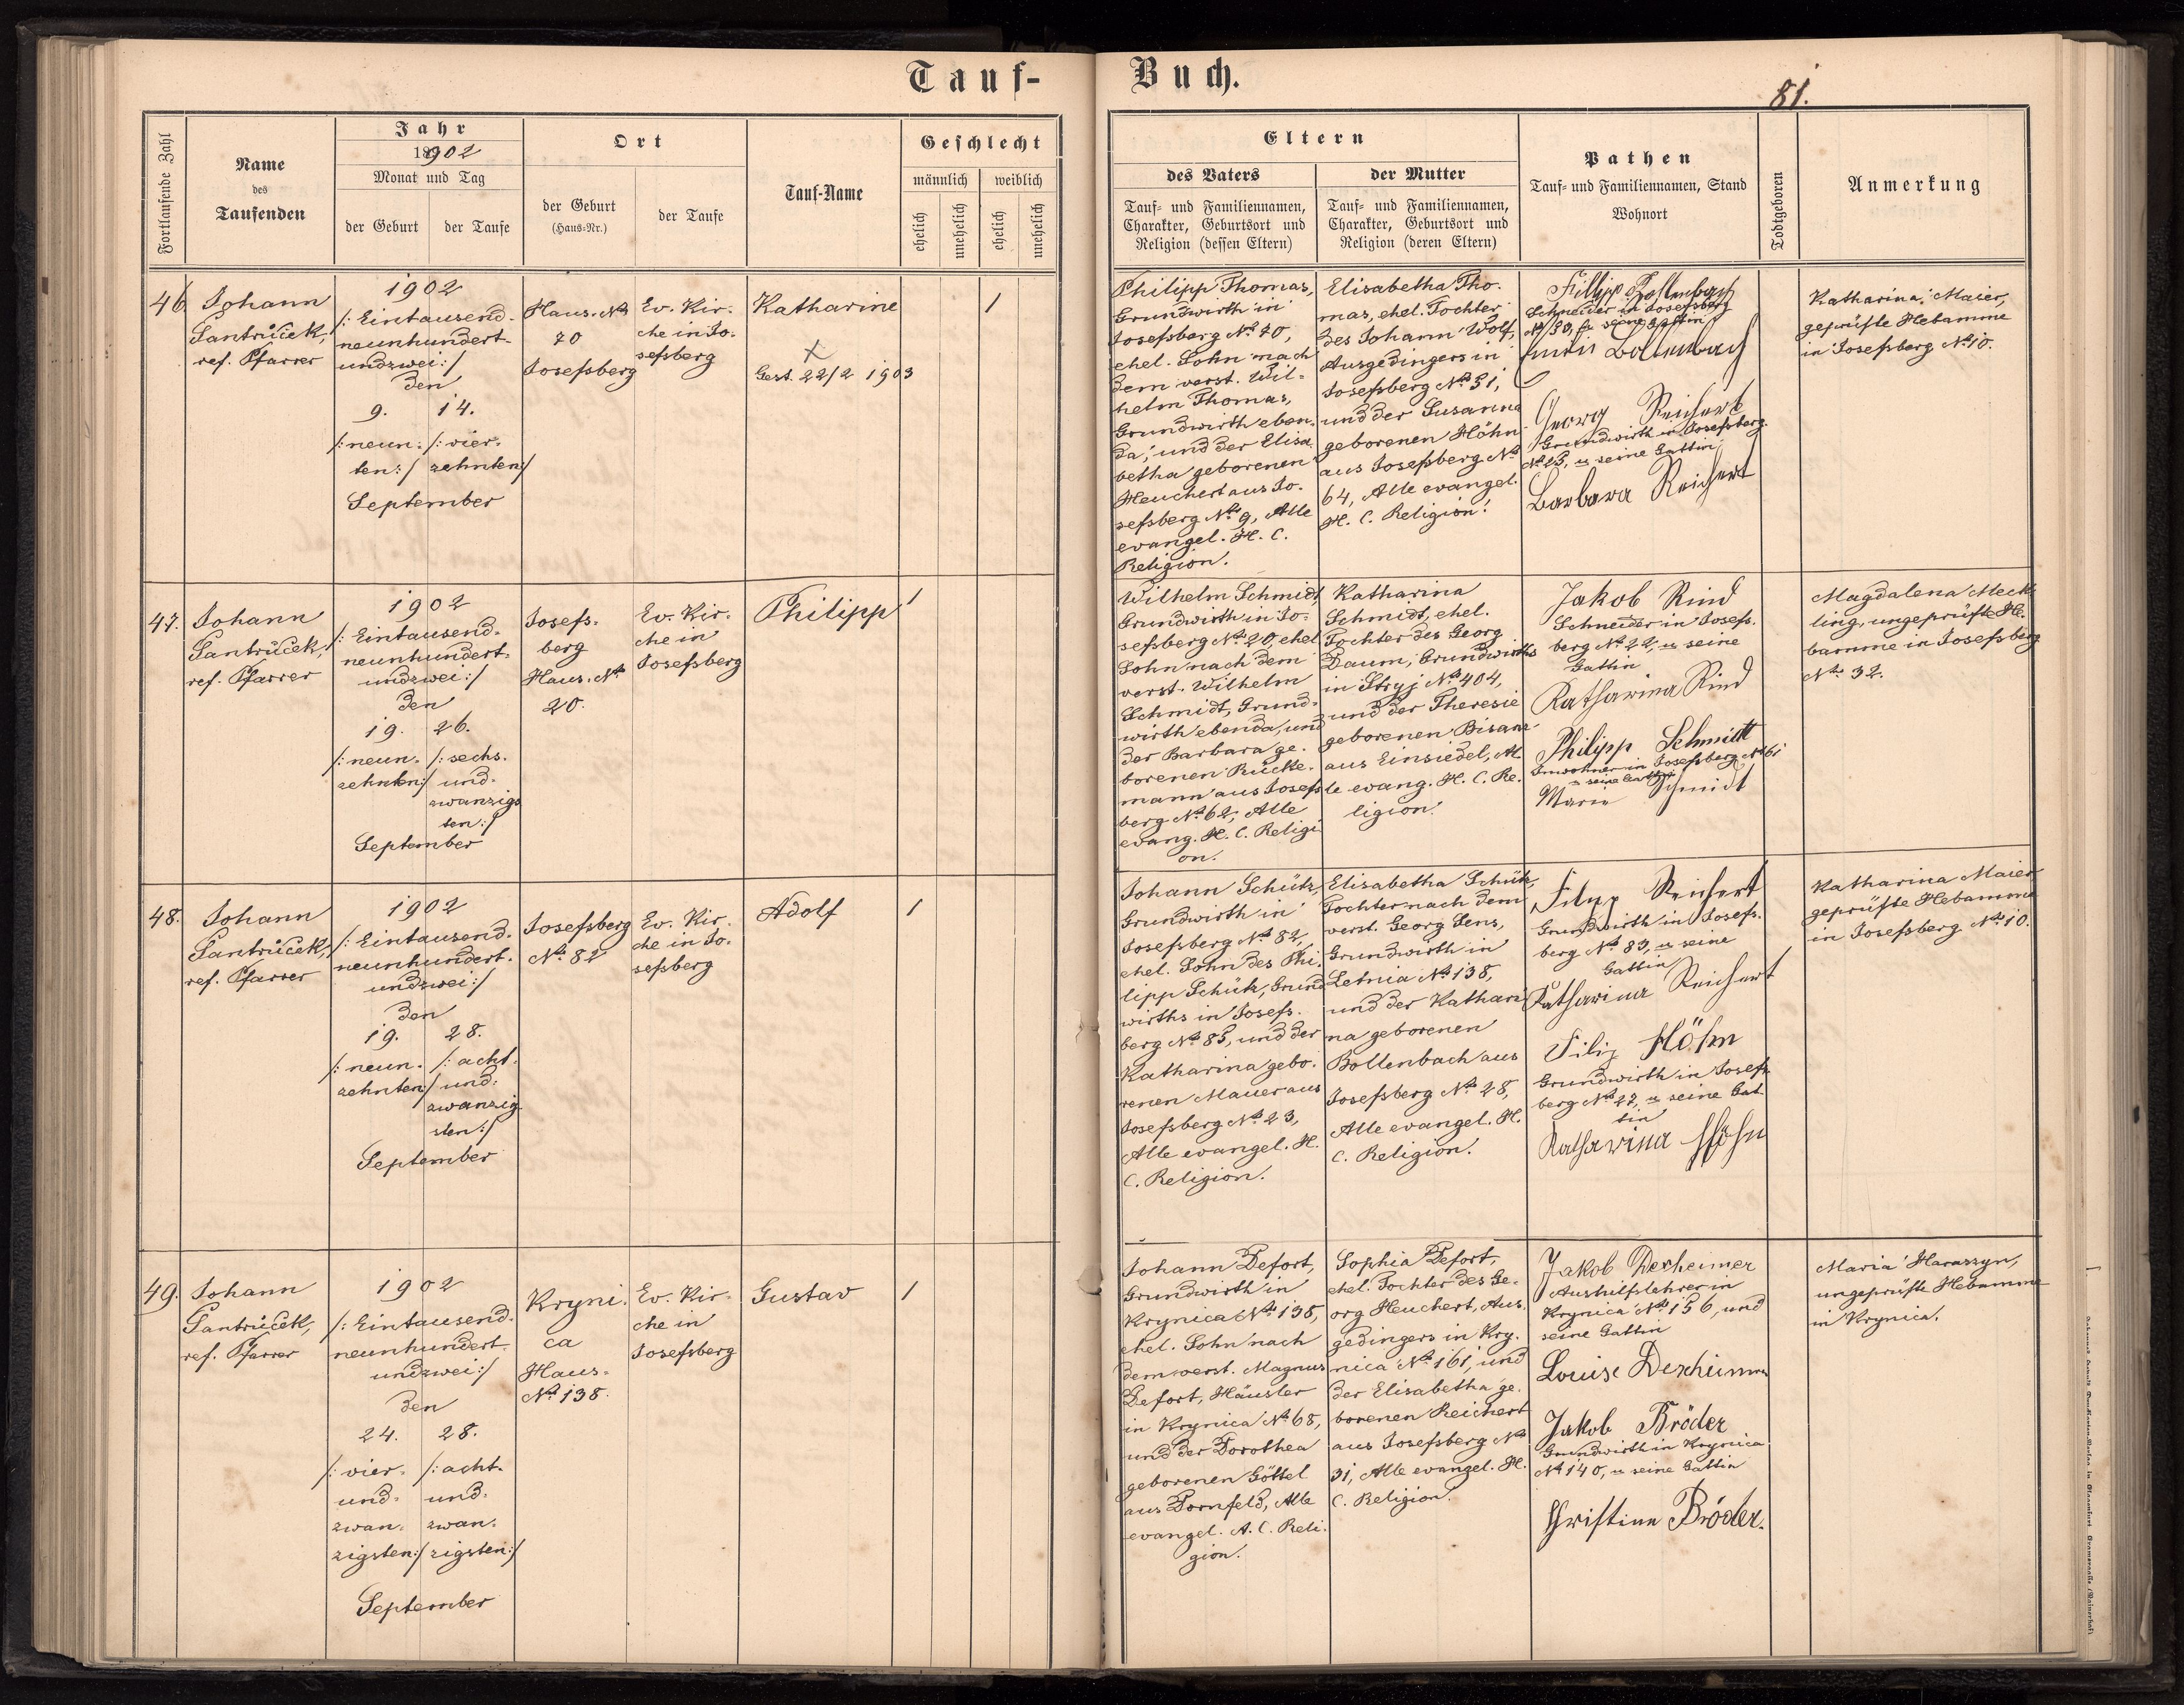 Tauf-
Buch.
81.
Fortlaufende Zahl
Name
des
Taufenden
Jahr
1902
Monat und Tag
der Geburt
der Taufe
Ort
der Geburt
(Haus-Nr.)
der Taufe
Tauf-Name
Geschlecht
männlich
weiblich
ehelich
unehelich
ehelich
unehelich
Eltern
des Vaters
Tauf- und Familiennamen,
Charakter, Geburtsort und
Religion (dessen Eltern)
der Mutter
Tauf- und Familiennamen,
Charakter, Geburtsort und
Religion (deren Eltern)
Pathen
Tauf- und Familiennamen, Stand
Wohnort
Todtgeboren
Anmerkung
46.
Johann
Jantrůček,
ref. Pfarrer
1902
/: Eintausend-
neunhundert-
undzwei :/
den
9. 14.
/: neun- /: vier-
ten :/ zehnten :/
September
Haus-No
70
Josefsberg
Ev. Kir-
che in Jo-
sefsberg
Katharine
Gest. 22/2 1903
1
Philipp Thomas,
Grundwirth in
Josefsberg No 70,
ehel. Sohn nach
dem verst. Wil-
helm Thomas,
Grundwirth eben-
da, und der Elisa-
betha geborenen
Heuchert aus Jo-
sefsberg No 9, Alle
evangel. H. C.
Religion.
Elisabetha Tho-
mas, ehel. Tochter
des Johann Wolf,
Ausgedingers in
Josefsberg No 51,
und der Susanna
geborenen Höhn
aus Josefsberg No
64, Alle evangel.
H. C. Religion.
Filipp Bollenbach
Schneider in Josefsberg
No 50, u seine Gattin
Bollenbach
Georg Reichert
Grundwirth in Josefsberg
No 25, u seine Gattin
Barbara Reichert
Katharina Maier,
geprüfte Hebamme
in Josefsberg No 10.
47.
Johann
Jantrůček,
ref. Pfarrer
1902
/: Eintausend-
neunhundert-
undzwei :/
den
19. 26.
/: neun- /: sechs-
zehnten :/ und-
zwanzigs
ten :/
September
Josefs-
berg
Haus-No
20.
Ev. Kir-
che in
Josefsberg
Philipp
1
Wilhelm Schmidt,
Grundwirth in Jo-
sefsberg No 20, ehel.
Sohn nach dem
verst. Wilhelm
Schmidt, Grund-
wirth ebenda, und
der Barbara ge-
borenen Rücke-
mann aus Josefs
berg No 62, Alle
evang. H. C. Religi
on.
Katharina
Schmidt, ehel.
Tochter des Georg
Daum, Grundwirths
in Stryj No 404,
und der Theresie
geborenen Bisanz
aus Einsiedel, Al
le evang. H. C. Re-
ligion.
Jakob Rind
Schneider in Josefs-
berg No 22, u seine
Gattin
Katharina Rind
Philipp Schmidt
Inwohner in Josefsberg No 61
u seine Gattin
Maria Schmidt
Magdalena Meck-
ling, ungeprüfte He-
bamme in Josefsberg
No 32.
48.
Johann
Jantrůček,
ref. Pfarrer
1902
/: Eintausend-
neunhundert-
undzwei :/
den
19. 28.
/: neun- /: acht-
zehnten :/ und-
zwanzig
sten :/
September
Josefsberg
No 82
Ev. Kir-
che in Jo-
sefsberg
Adolf
1
Johann Schütz,
Grundwirth in
Josefsberg No 82,
ehel. Sohn des Phi-
lipp Schütz, Grund
wirths in Josefs-
berg No 85, und der
Katharina gebo-
renen Mauer aus
Josefsberg No 23,
Alle evangel. H.
C. Religion.
Elisabetha Schütz,
Tochter nach dem
verst. Georg Sens,
Grundwirth in
Letnia No 138,
und der Kathari
na geborenen
Bollenbach aus
Josefsberg No 28,
Alle evangel. H.
C. Religion.
Reichert
Grundwirth in Josefs-
berg No 83, u seine
Gattin
Katharina Reichert
Filip Höhn
Grundwirth in Josefs-
berg No 27, u seine Gat-
tin
Katharina Höhn
Katharina Maier
geprüfte Hebamme
in Josefsberg No 10.
49.
Johann
Jantrůček,
ref. Pfarrer
1902
/: Eintausend-
neunhundert-
undzwei :/
den
24. 28.
/: vier- /: acht-
und- und-
zwan- zwan-
zigsten :/ zigsten :/
September
Kryni-
ca
Haus-
No 138.
Ev. Kir-
che in
Josefsberg
Gustav
1
Johann Defort,
Grundwirth in
Krynica No 138,
ehel. Sohn nach
dem verst. Magnus
Defort, Häusler
in Krynica No 68,
und der Dorothea
geborenen Göttel
aus Dornfeld, Alle
evangel. A. C. Reli-
gion.
Sophia Defort,
ehel. Tochter des Ge-
org Heuchert, Aus-
gedingers in Kry-
nica No 161, und
der Elisabetha ge-
borenen Reichert
aus Josefsberg No
31, Alle evangel. H.
C. Religion.
Jakob Dexheimer
Aushilfslehrer in
Krynica No 156, und
seine Gattin
Louise Dexheimer
Jakob Bröder
Grundwirth in Krynica
No 140, u seine Gattin
Christine Bröder.
Maria Haraszyn,
ungeprüfte Hebamme
in Krynica.